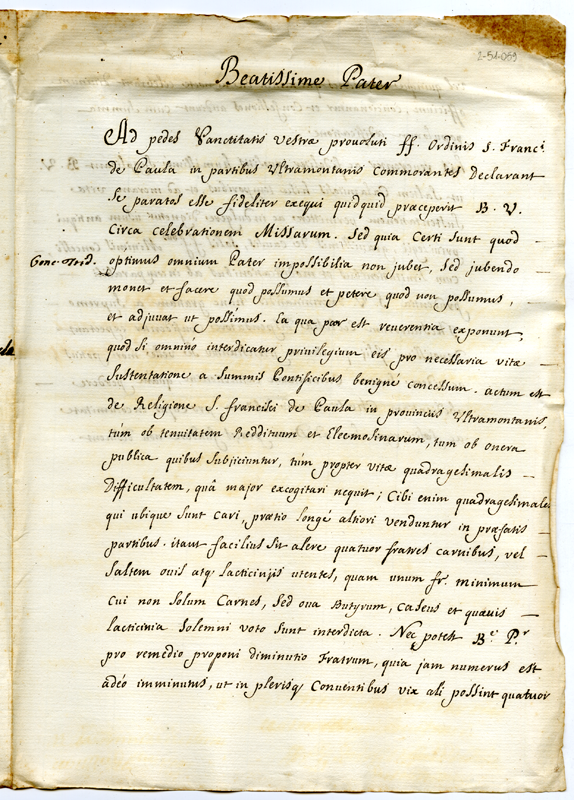 2-51-059
Beatissime Pater
Ad pedes Sanctitatis vestræ provoluti ff. Ordinis S. Franc.
de Paula in partibus Ultramontanis commorantes Declarant
se paratos esse fideliter exequi quidquid præceperit B. V.
Circa celebrationem Missarum. Sed quia Certi sunt quod
Conc. Trid. optimus omnium Pater impossibilia non jubet, sed jubendo
monet et facere quod possumus et petere quod non possumus,
et adjuvat ut possimus. Ea qua par est reverentia exponunt,
quod si omnino interdicatur privilegium eis pro necessaria vitæ
sustentatione a summis Pontificibus benigné concessum. actum est
de Religione S. francisci de Paula in provinciis Ultramontanis,
túm ob tenuitatem Reddituum et Eleemosinarum, tum ob onera
publica quibus subjiciuntur, túm propter vitæ quadragesimalis
Difficultatem, quâ major excogitari nequit; Cibi enim quadragesimales
qui ubique sunt cari, prætio longé altiori venduntur in præfatis
partibus. itaut facilius sit alere quatuor fratres carnibus, vel
saltem ovis atq lacticinijs utentes, quam unum fr. minimum
cui non solum Carnes, sed ova Butyrum, caseus et quævis
lacticinia solemni voto sunt interdicta. Nec potest B.e P.r
pro remedio proponi diminutio Fratrum, quia jam numerus est
adeó imminutus, ut in plerisq Conventibus vix ali possint quatuor